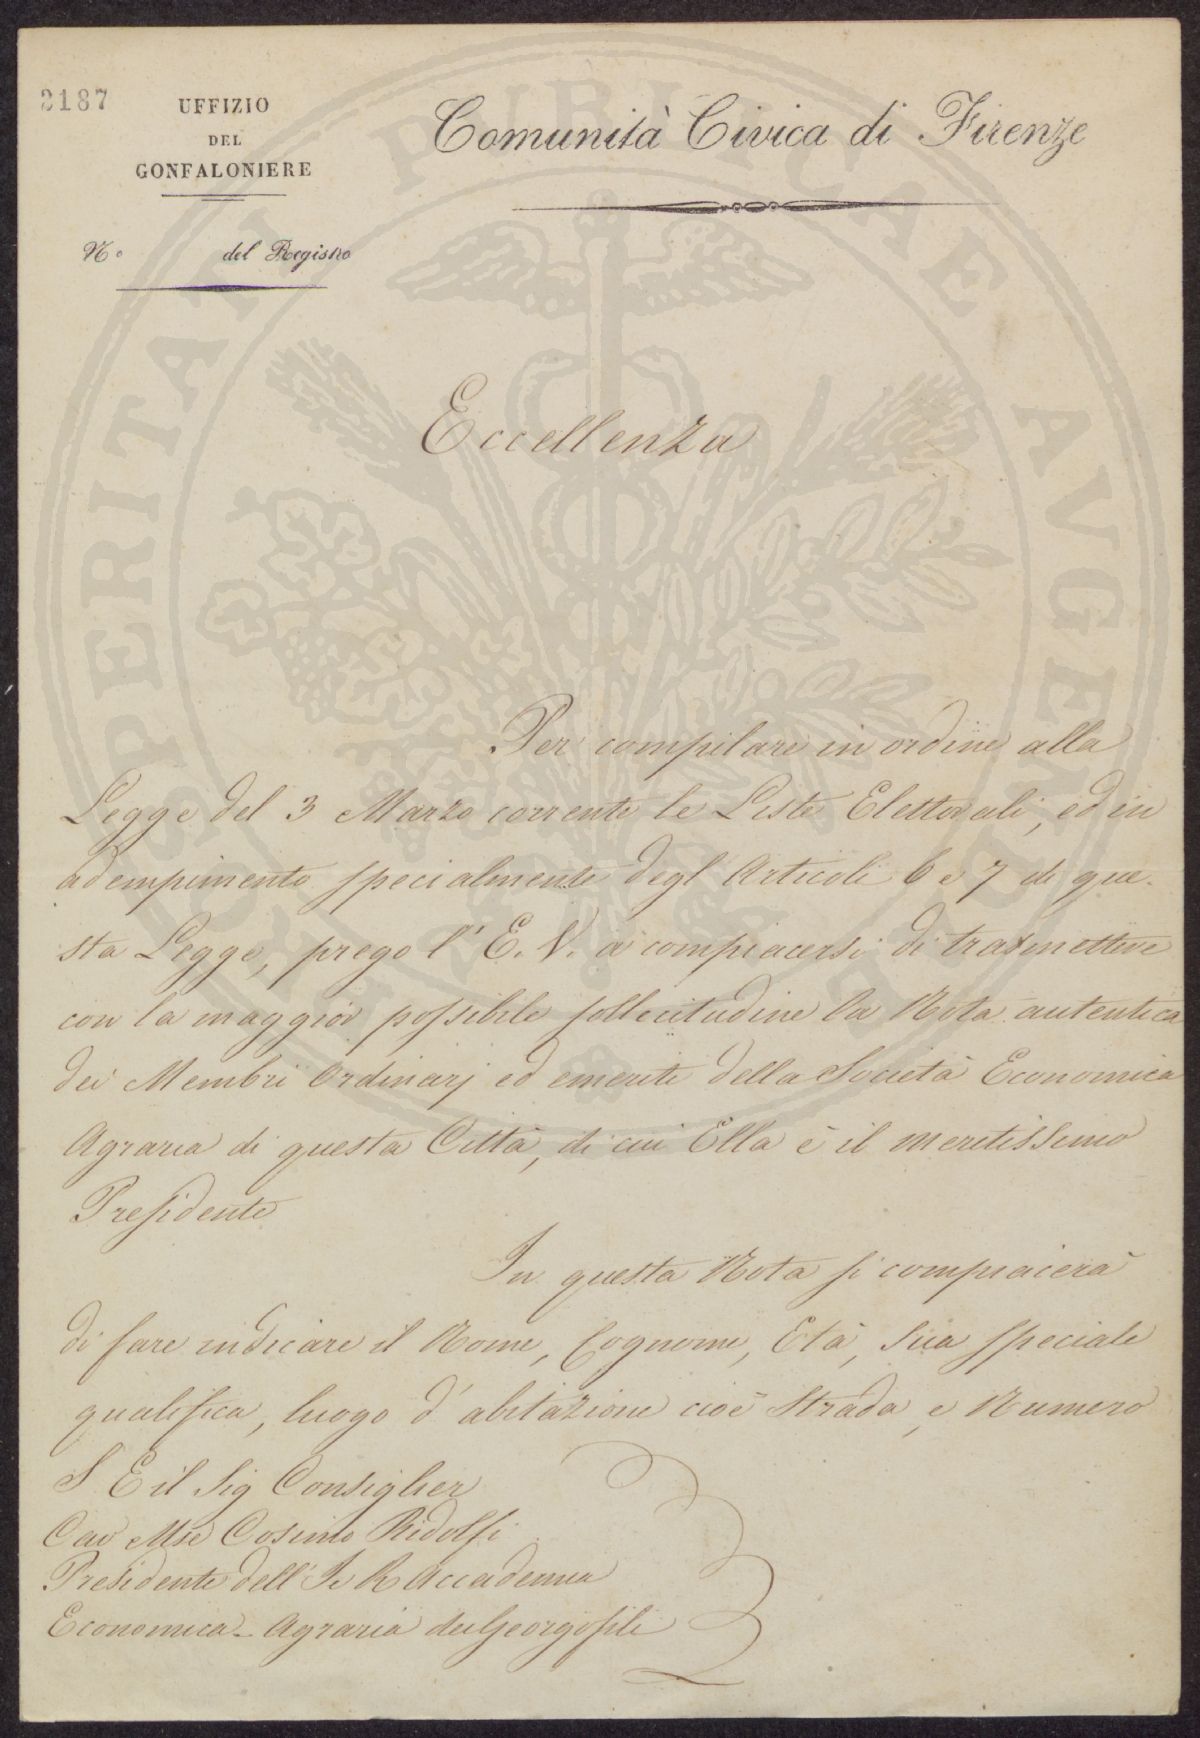 2187
UFFIZIO
DEL
GONFALONIERE
N.o del Registro
Comunità Civica di Firenze
Eccellenza
Per compilare in ordine alla
Legge del 3 Marzo corrente le Liste Elettorali, ed in
adempimento specialmente degl'Articoli 6 e 7 di que-
sta Legge, prego l'E. V. a compiacersi di trasmettere
con la maggior possibile sollecitudine la Nota autentica
dei Membri Ordinarj ed emeriti della Società Economica
Agraria di questa Città, di cui Ella è il meritissimo
Presidente
In questa Nota si compiacerà
di fare indicare il Nome, Cognome, Età, sua speciale
qualifica, luogo d'abitazione cioè Strada, e Numero
S E il Sig Consiglier
Cav Mse Cosimo Ridolfi
Presidente dell'I e R Accademia
Economica-Agraria dei Georgofili
PROSPERITATI PUBLICAE AUGENDAE